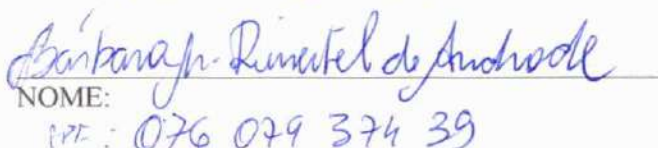 Bárbara Jr. Pimentel de Andrade
NOME:
CPF: 076 079 374 39